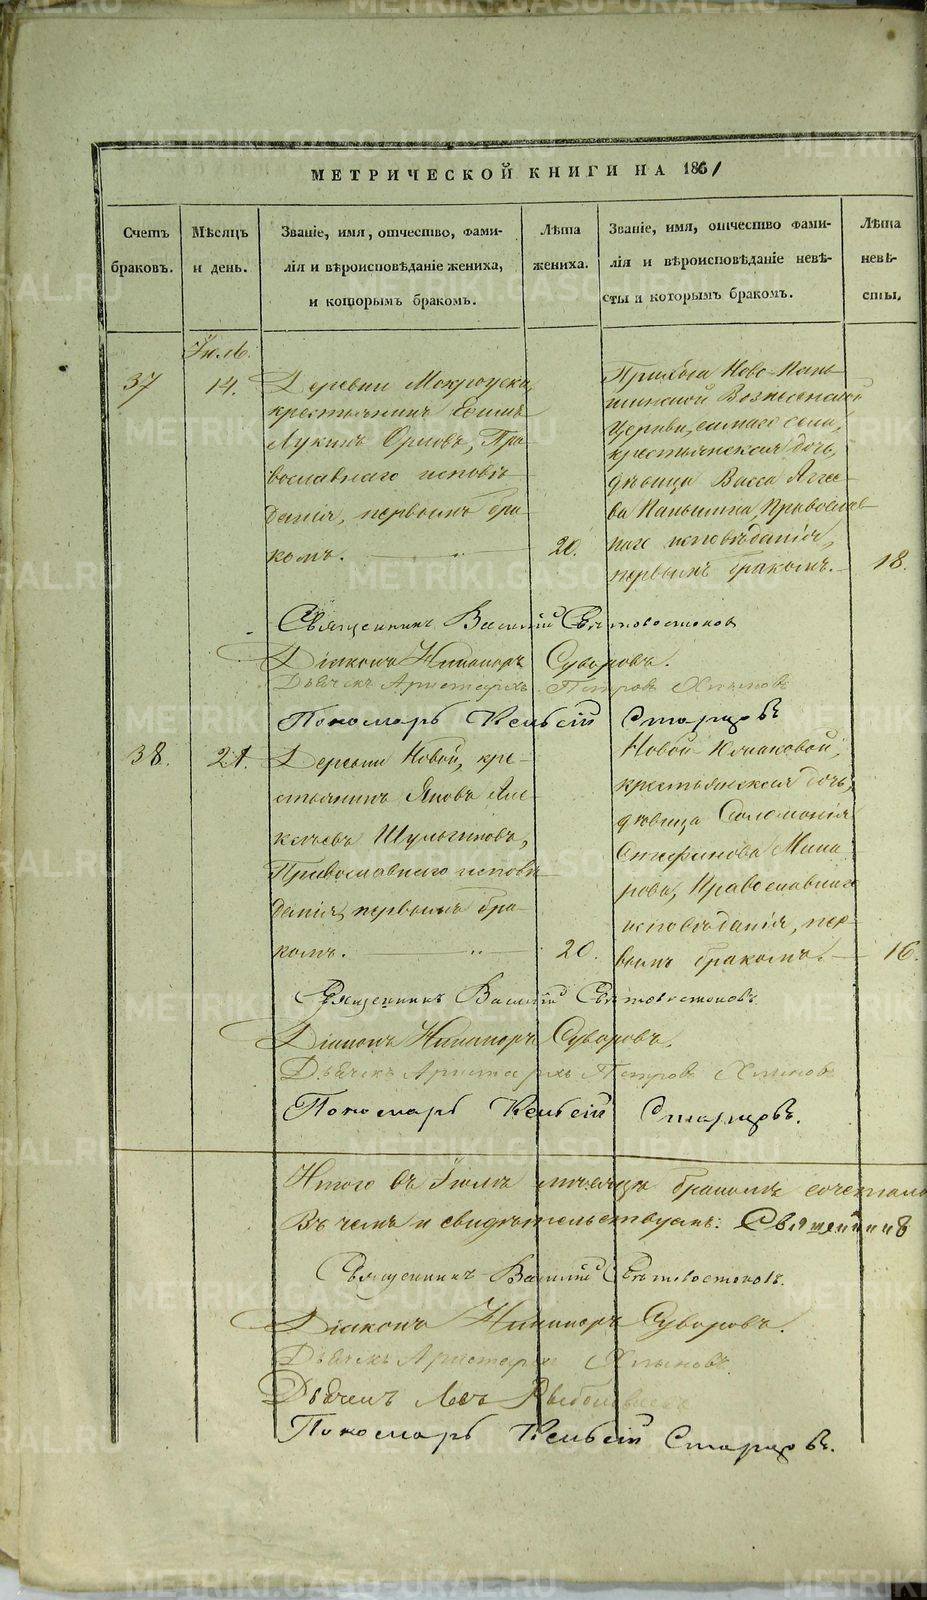 МЕТРИЧЕСКОЙ КНИГИ НА 1861
Счетъ браковъ.
Мѣсяцъ и день.
Званіе, имя, отчество, фами-
лія и вѣроисповѣданіе жениха,
и которымъ бракомъ.
Лѣта жениха.
Званіе, имя, отчество фами-
лія и вѣроисповѣданіе невѣ-
сты и которымъ бракомъ.
Лѣта невѣ-
сты.
Іюль.
37
14.
Деревни
крестьянинъ
Лукинъ Орловъ, Пра-
вославнаго исповѣ-
данія, первымъ бра-
комъ.
20.
Прихода Ново-Пань-
шинской Вознесенской
Церкви, самаго села,
крестьянская дочь,
дѣвица Васса Аггее-
ва Паньшина Православ-
наго исповѣданія,
первымъ бракомъ.
18.
Священникъ Василій Свѣтовостоковъ
Діаконъ Никаноръ Суворовъ.
Дьячекъ Аристархъ Петровъ
Пономарь Старцовъ
38.
21.
Деревни Новой, кре-
стьянинъ Яковъ Але-
ксѣевъ Шульгиновъ,
Православнаго исповѣ-
данія, первымъ бра-
комъ.
20.
Новой
крестьянская дочь,
дѣвица Соломонія
Мака-
рова, Православнаго
исповѣданія, пер-
вымъ бракомъ.
16.
Священникъ Василій Свѣтовостоковъ
Діаконъ Никаноръ Суворовъ.
Дьячекъ Аристархъ Петровъ
Пономарь Старцовъ.
Итого въ Іюлѣ мѣсяцѣ бракомъ сочетало
Въ чемъ и свидѣтельствуемъ: Священникъ
Священникъ Василій Свѣтовостоковъ.
Діаконъ Никаноръ Суворовъ.
Дьячекъ Аристархъ
Дьячекъ
Пономарь Старцовъ.
METRIKI.GASO-URAL.RU